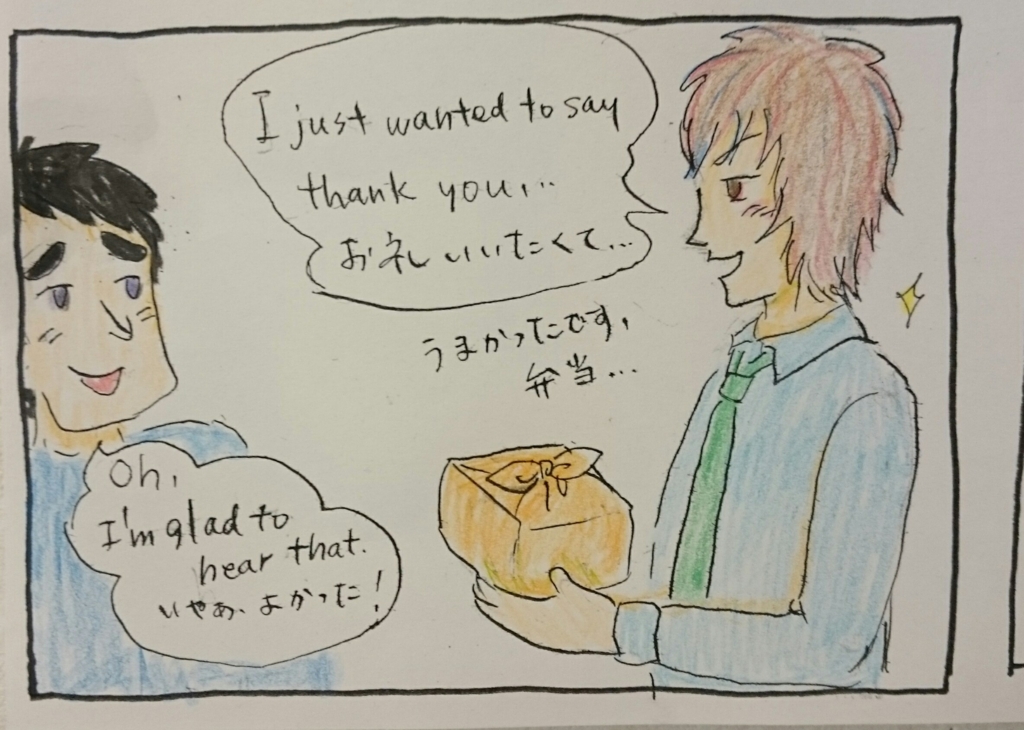 I just wanted to say
thank you,...
お礼いいたくて...
うまかったです,
弁当...
Oh,
I'm glad to
hear that.
いやぁ、よかった!